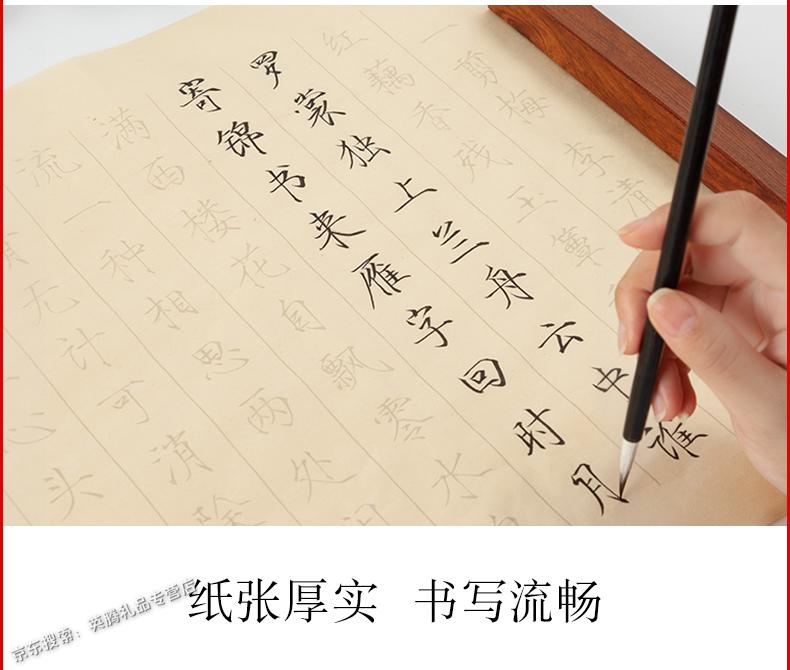 一剪梅李清
红藕香残玉簟
罗裳独上兰舟云中谁
寄锦书来雁字回时月
满西楼花自飘零水
流一种相思两处
无计可消除
心头
纸张厚实 书写流畅
京东搜索：英腾礼品专营店